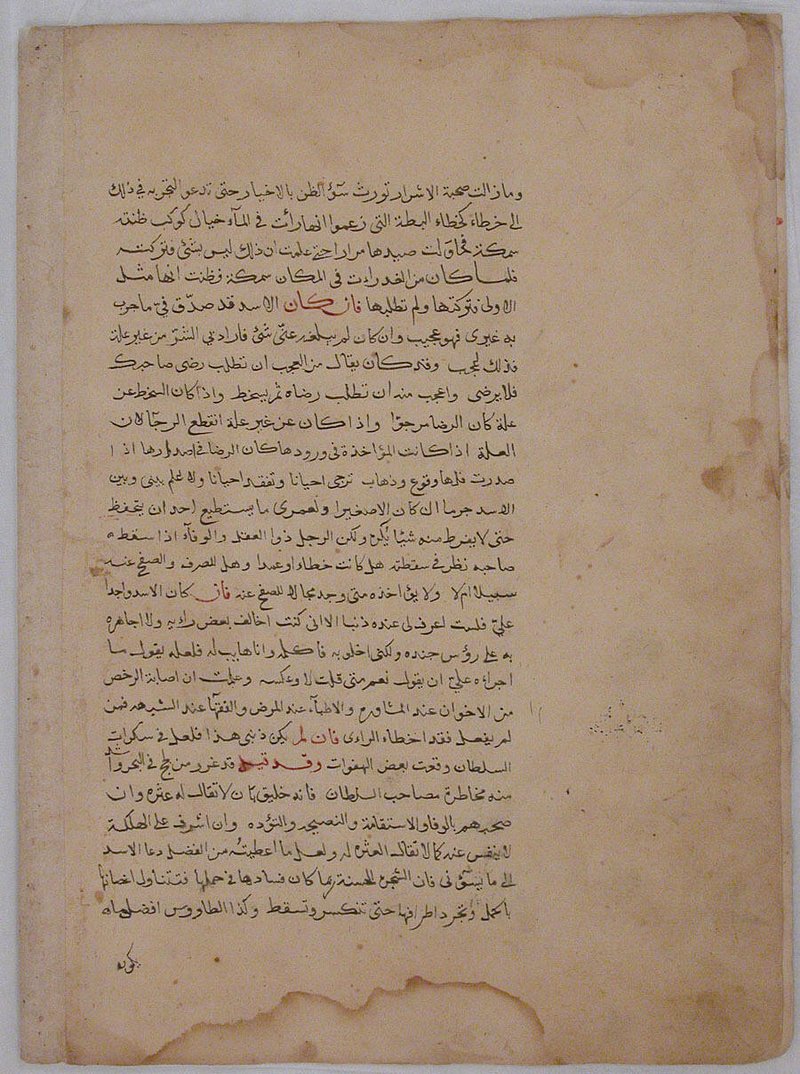 وما زالت صحبة الاشرار تورث سؤ الظن بالاخيار حتى تدعو التجربه في ذلك
الى خطاء كخطاء البطة التي زعموا انها رأت في المآء خيال كوكب ظنته
سمكة فحاولت صيدها مرارا حتى علمت ان ذلك ليس بشئ فتركته
فلما كان من الغد رات في المكان سمكة فظنت انها مثل
الاولى فتركتها ولم تطلبها فان كان الاسد قد صدّق فيّ ما جرب
به غيري فهو عجيب وان كان لم يبلغه عنّي شئ فاراد بي الشر من غير علة
فذلك لعجب وقد كان يقال من العجب ان تطلب رضى صاحبك
فلا يرضى واعجب منه ان تطلب رضاه ثم يسخط واذا كان السخط عن
علة كان الرضا مرجوّا واذا كان عن غير علة انقطع الرجآ لان
العلة اذا كانت المؤاخذة في ورودها كان الرضا في اصدارها اذا
صدرت فلها وقوع وذهاب ترجى احيانا وتفقد احيانا ولا اعلم بيني وبين
الاسد جرما ان كان الا صغيرا ولعمرى ما يستطيع احد ان يتحفظ
حتى لا يفرط منه شيئا يكره ولكن الرجل ذوا العقل والوفآء اذا سقط
صاحبه نظر في سقطته هل كانت خطاء او عمدا وهل للصرف والصفح عنه
سبيلا ام لا ولا يؤاخذه متى وجد مجالا للصفح عنه فان كان الاسد واجدا
عليّ فلست اعرف لي عنده ذنبا الا اني كنت اخالف بعض رايه ولا اجاهره
به على رؤس جنده ولكني اخلو به فاكلمه وانا هايب له فلعله يقول ما
اجراه علي ان يقول نعم متى قلت لا وعكسه وعلمت ان اصابة الرخص
من الاخوان عند المشاورة والاطبآء عند المرض والفقهآ عند الشبهه فمن
لم يفعل فقد اخطاء الراى فان لم يكن ذنبي هذا فلعل في سكرات
السلطان وقعت بعض الهفوات وقد قيل قد غرر من لجج في البحر وأشد
منه مخاطرة مصاحب السلطان فانه خليق بان لا تقال له عثره وان
صحبهم بالوفا والاستقامة والنصيحه والتؤده وان اشرف على الهلكة
لا ينفس عنه كما لا تقال العثره له ولعل ما اعطيته من الفضل دعا الاسد
الى ما يسؤني فان الشجرة الحسنة ربما كان فسادها في حملها فتتناول اغصانها
بالحمل وتجرد اطرافها حتى تنكسر وتسقط وكذا الطاووس افضل ماله